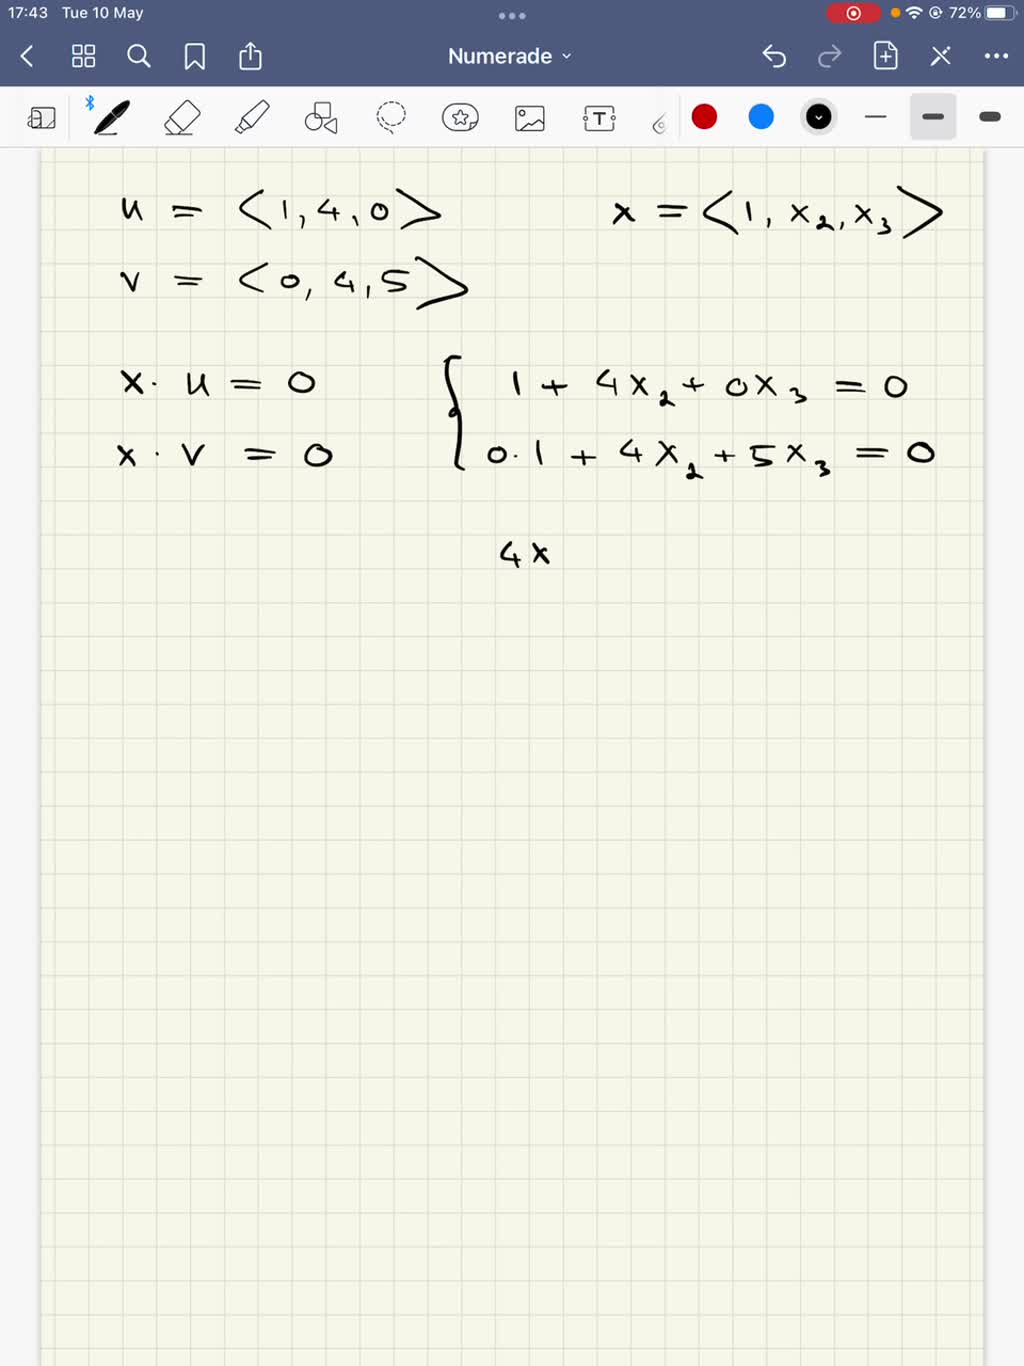 17:43 Tue 10 May 72%
Numerade
T
u = <1, 4, 0> x = <1, x₂, x₃>
v = <0, 4, 5>
x · u = 0 { 1 + 4x₂ + 0x₃ = 0
x · v = 0 0·1 + 4x₂ + 5x₃ = 0
4x